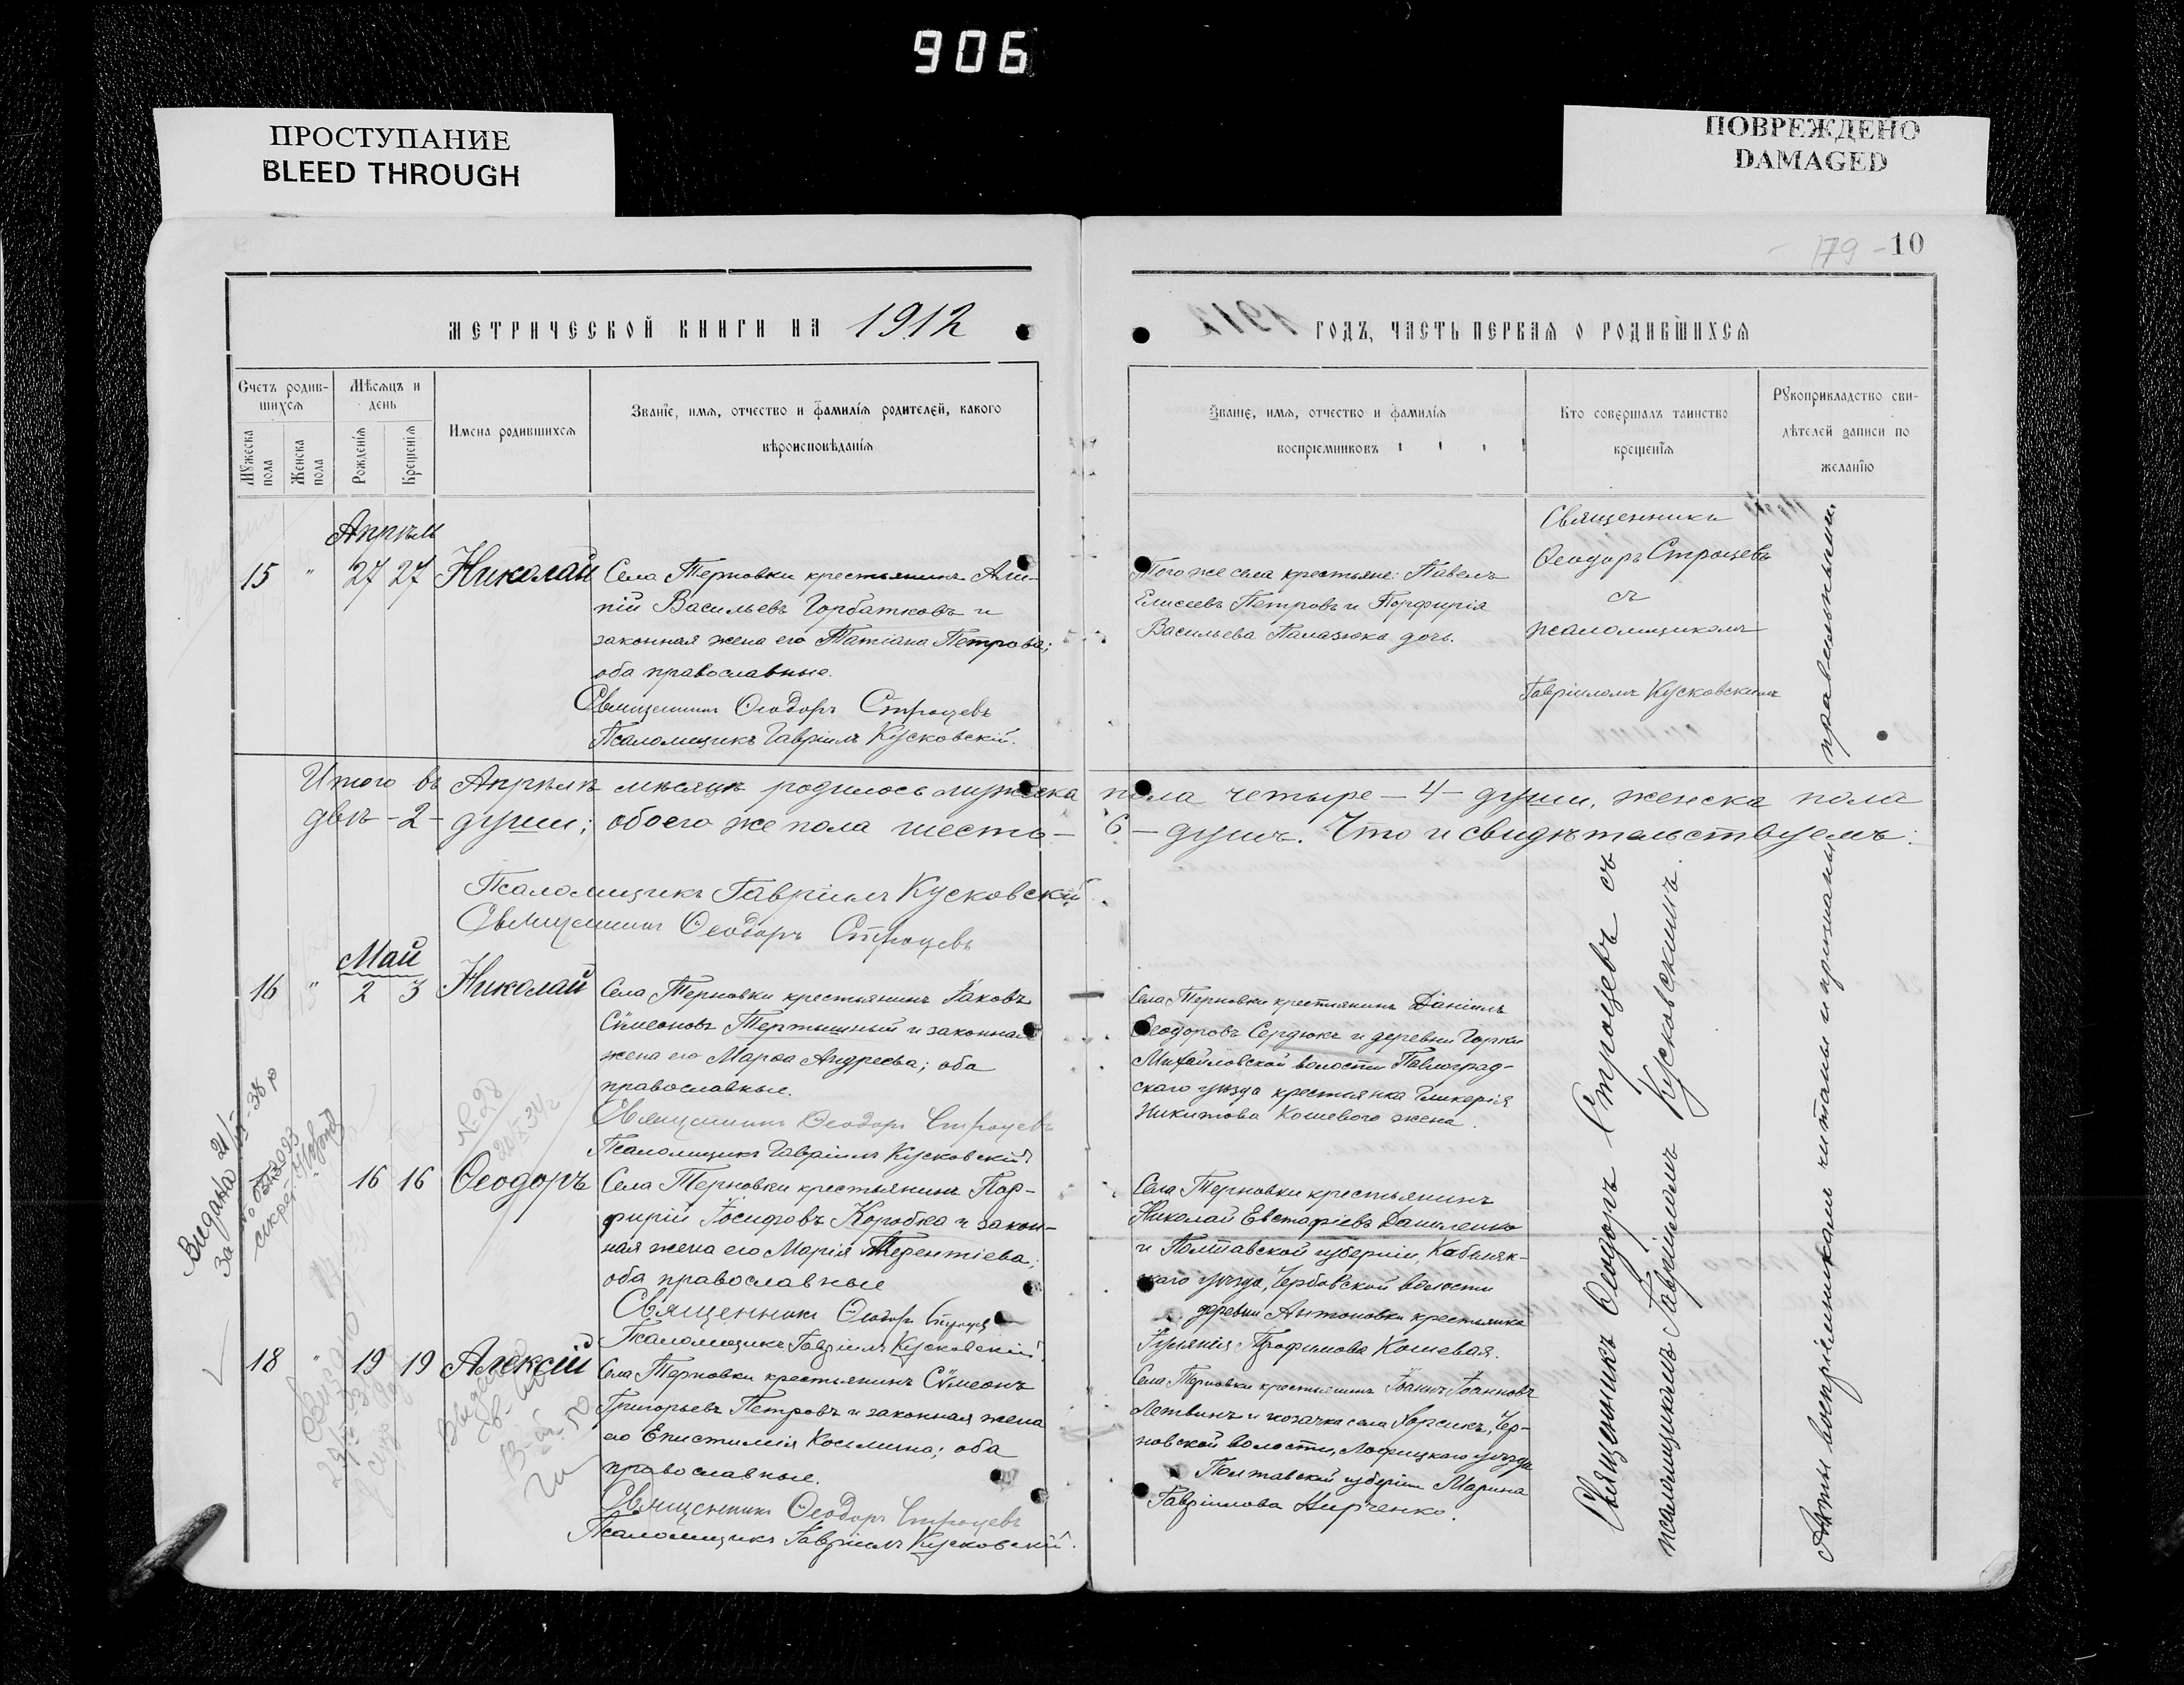 906
ПРОСТУПАНИЕ
BLEED THROUGH
ПОВРЕЖДЕНО
DAMAGED
179 - 10
МЕТРИЧЕСКОЙ КНИГИ НА 1912
Счетъ родив-
шихся
Мѣсяцъ и
день
Мужеска
пола
Женска
пола
Рожденія
Крещенія
Имена родившихся
Званіе, имя, отчество и фамилія родителей, какого
вѣроисповѣданія
Апрѣль
15 " 27 27 Николай
Села Терновки крестьянинъ
Васильевъ Горбатковъ и
законная жена его Татіана Петрова;
оба православные.
Священникъ Ѳеодоръ Строцевъ
Псаломщикъ Гавріилъ Кусковскій.
Итого въ Апрѣлѣ мѣсяцѣ родилось мужеска
двѣ - 2 - души; обоего же пола шесть -
Псаломщикъ Гавріилъ Кусковскій.
Священникъ Ѳеодоръ Строцевъ
Май
16 " 2 3 Николай
Села Терновки крестьянинъ Іаковъ
Сѵмеоновъ Тертышный и законная
жена его Марѳа Андреева; оба
православные.
Священникъ Ѳеодоръ Строцевъ
Псаломщикъ Гавріилъ Кусковскій
№ 28
16 16 Ѳеодоръ
Села Терновки крестьянинъ Пор-
фирій Іосифовъ Коробка и закон-
ная жена его Марія Терентіева;
оба православные
Священникъ Ѳеодоръ Строцевъ
Псаломщикъ Гавріилъ Кусковскій.
18 " 19 19 Алексій
Села Терновки крестьянинъ Сѵмеонъ
Григорьевъ Петровъ и законная жена
его Епистимія Космина; оба
православные.
Священникъ Ѳеодоръ Строцевъ
Псаломщикъ Гавріилъ Кусковскій.
Видана 21
За
1912 ГОДЪ, ЧАСТЬ ПЕРВАЯ О РОДИВШИХСЯ
Званіе, имя, отчество и фамилія
воспріемниковъ
Кто совершалъ таинство
крещенія
Рукоприкладство сви-
дѣтелей записи по
желанію
Того же села крестьяне: Павелъ
Елисеевъ Петровъ и Порфирія
Васильева дочь.
Священникъ
Ѳеодоръ Строцевъ
съ
псаломщикомъ
Гавріиломъ Кусковскимъ
правильными.
пола четыре - 4 - души, женска пола
6 - душъ. Что и свидѣтельствуемъ:
Села Терновки крестьянинъ Даніилъ
Ѳеодоровъ Сердюкъ и деревни Горки
Михайловской волости Павлоград-
скаго уѣзда крестьянка Гликерія
Никитова Кошевого жена.
Села Терновки крестьянинъ
Николай Евстафіевъ Даниленко
и Полтавской губерніи, Кобеляк-
скаго уѣзда, волости
деревни Антоновки крестьянка
Трофимова Кошевая.
Села Терновки крестьянинъ Іоаннъ Іоанновъ
Летвинъ и козачка села
волости, уѣзда
Полтавской губерніи Марина
Гавріилова
Священникъ Ѳеодоръ Строцевъ съ
псаломщикомъ Гавріиломъ Кусковскимъ.
Акты воспріемникамъ читаны и признаны